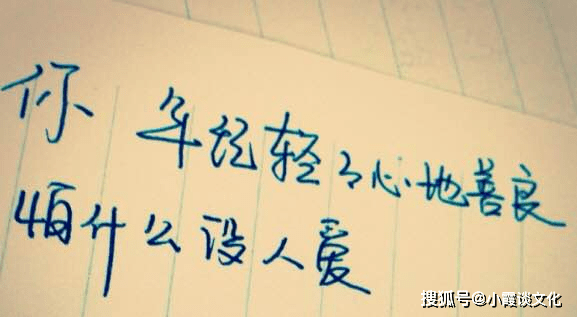 你 年纪轻々心地善良
怕什么没人爱
搜狐号@小霞谈文化